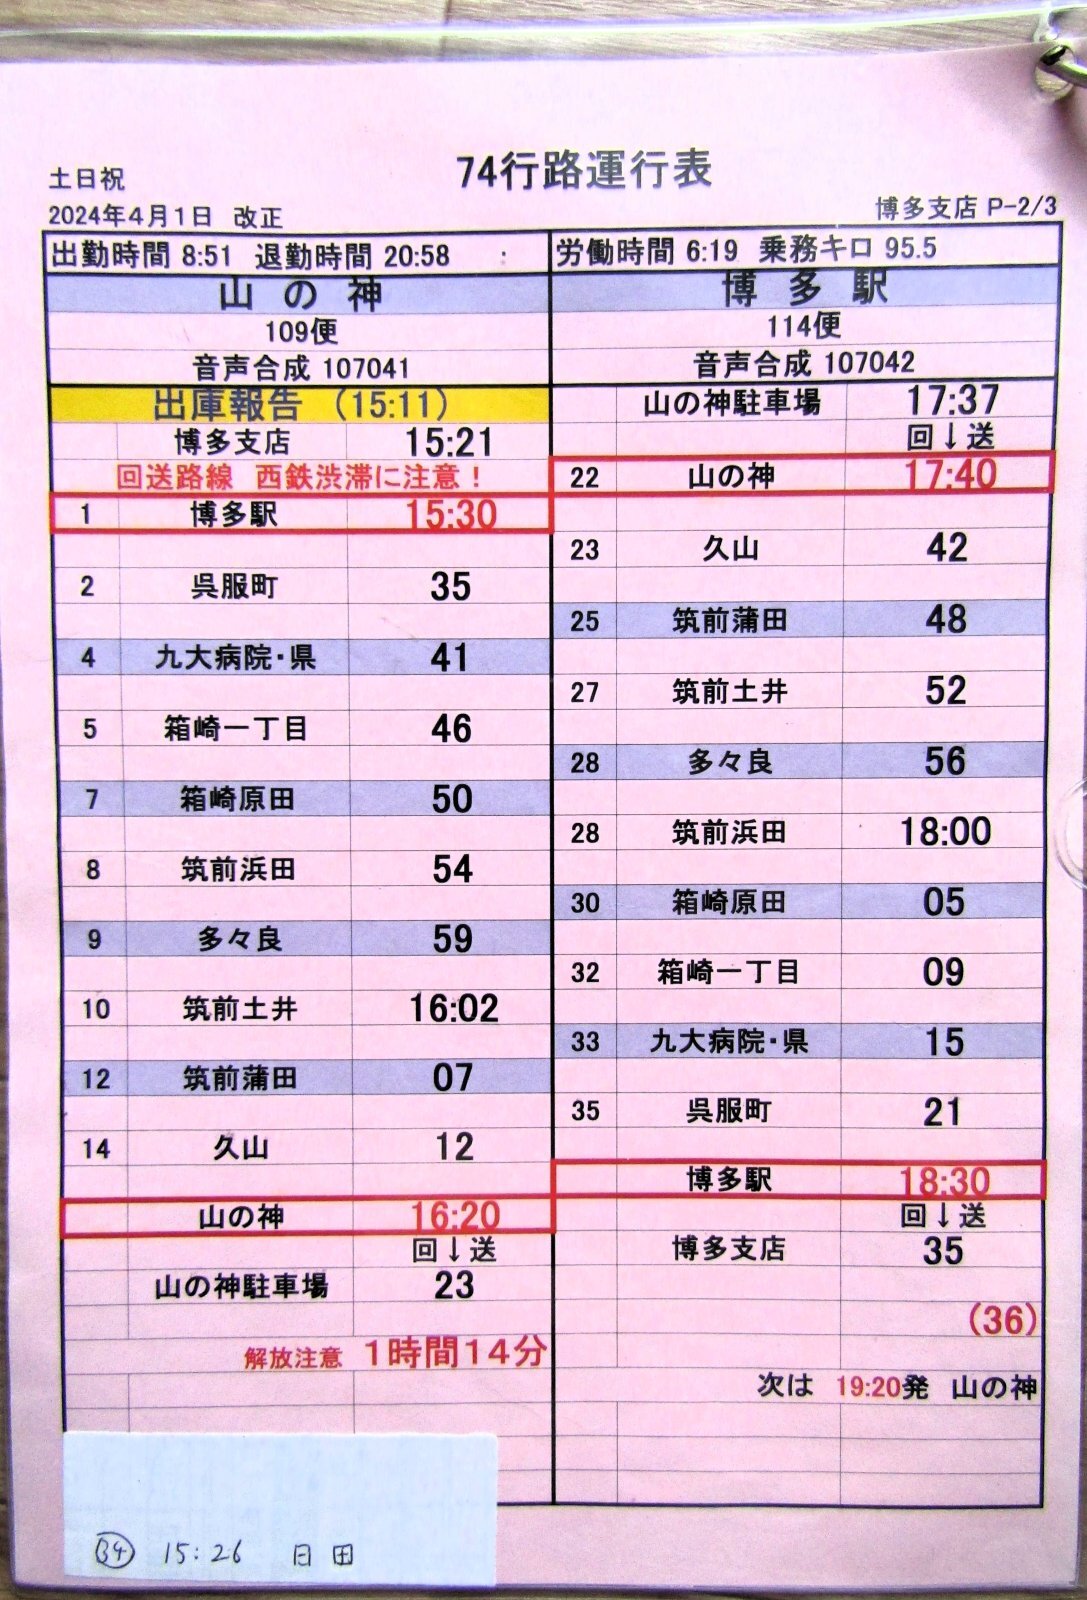 土日祝
74行路運行表
2024年4月1日 改正
博多支店 P-2/3
出勤時間 8:51 退勤時間 20:58 :
労働時間 6:19 乗務キロ 95.5
山の神
109便
音声合成 107041
出庫報告 (15:11)
博多支店 15:21
回送路線 西鉄渋滞に注意！
1 博多駅 15:30
2 呉服町 35
4 九大病院・県 41
5 箱崎一丁目 46
7 箱崎原田 50
8 筑前浜田 54
9 多々良 59
10 筑前土井 16:02
12 筑前蒲田 07
14 久山 12
山の神 16:20
回↓送
山の神駐車場 23
解放注意 1時間14分
博多駅
114便
音声合成 107042
山の神駐車場 17:37
回↓送
22 山の神 17:40
23 久山 42
25 筑前蒲田 48
27 筑前土井 52
28 多々良 56
28 筑前浜田 18:00
30 箱崎原田 05
32 箱崎一丁目 09
33 九大病院・県 15
35 呉服町 21
博多駅 18:30
回↓送
博多支店 35
(36)
次は 19:20発 山の神
34 15:26 日田